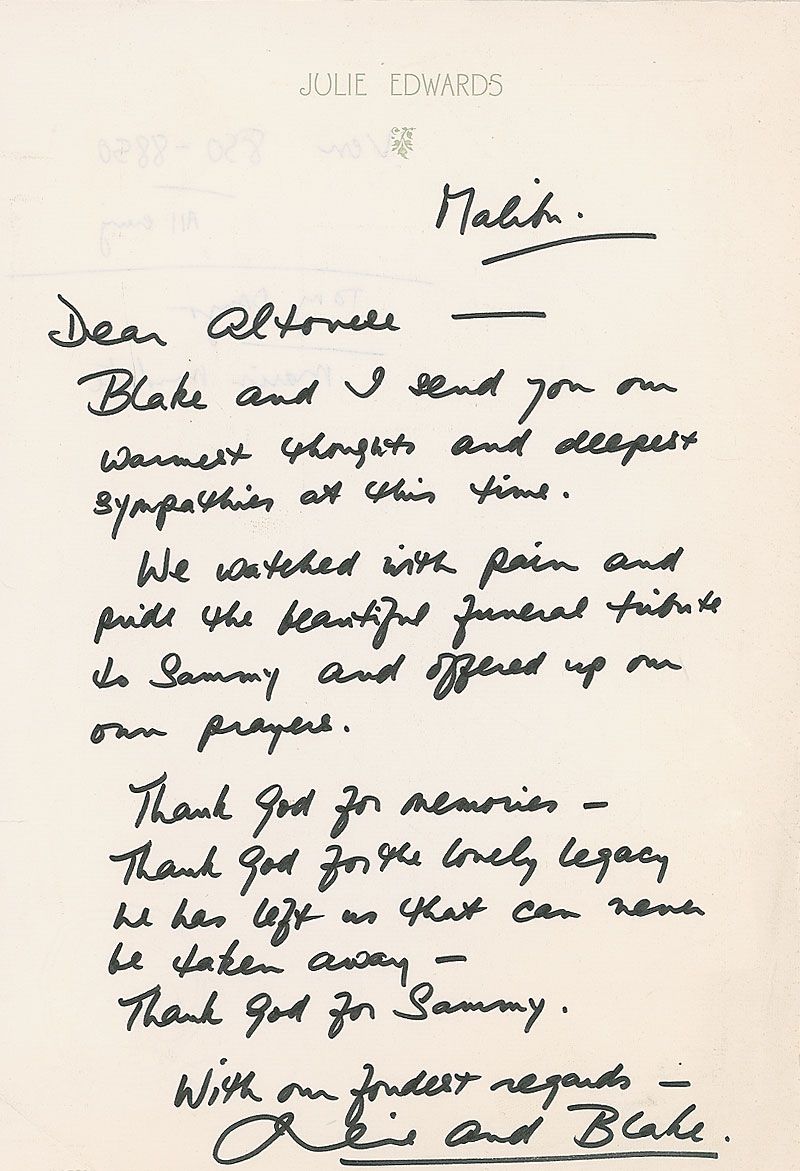 JULIE EDWARDS
Malibu.
Dear Altovese —
Blake and I send you our
warmest thoughts and deepest
sympathies at this time.
We watched with pain and
pride the beautiful funeral tribute
to Sammy and offered up our
own prayers.
Thank God for memories –
Thank God for the lovely legacy
he has left us that can never
be taken away –
Thank God for Sammy.
With our fondest regards –
Julie and Blake.